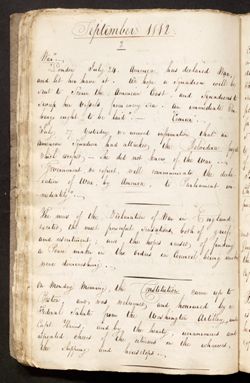 September 1812
War
London July 24. America has declared War,
and let her have it. We hope a squadron will be
sent to Scour the American Coast and Squadrons to
sweep her Vessels from every Sea. An immediate
ought to be laid"
July 27. Yesterday we received information that an
American squadron had attacked the Belvidera frigate
which escaped, - She did not know of the War,
Government, we expect, will communicate the decla-
ration of War by America, to Parliament im-
mediately".
The news of the Declaration of War in England
excites the most powerful sensations, both of grief
and resentment; and the hopes of finding
a Peace maker in the orders in Council being
were
On Monday Morning, the Constitution came up to
Boston, and was welcomed and honoured by a
Federal Salute from the Washington Artillery,
Capt Harris, and by the hearty, unanimous and
repeated cheers of the citizens on the wharves,
the shipping and housetops